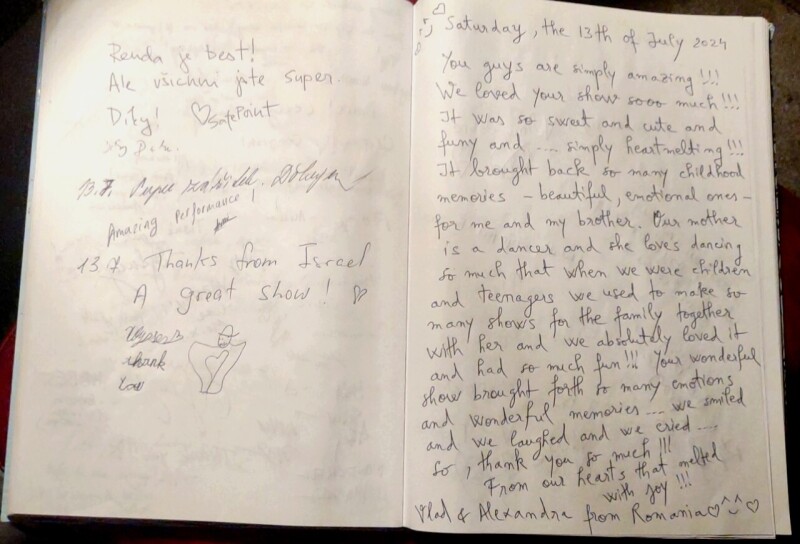 Renda je best!
Ale všichni jste super.
Díky! ♡ SafePoint
13.7. Super zážitek. Děkujeme
Amazing Performance!
13.7. Thanks from Israel
A great show! ♡
thank
Saturday, the 13th of July 2024
You guys are simply amazing!!!
We loved your show sooo much!!!
It was so sweet and cute and
funny and .... simply heartmelting!!!
It brought back so many childhood
memories - beautiful, emotional ones -
for me and my brother. Our mother
is a dancer and she loves dancing
so much that when we were children
and teenagers we used to make so
many shows for the family together
with her and we absolutely loved it
and had so much fun!!! Your wonderful
show brought forth so many emotions
and wonderful memories .... we smiled
and we laughed and we cried ....
so, thank you so much!!!
From our hearts that melted
with joy!!!
Vlad & Alexandra from Romania ♡^‿^♡